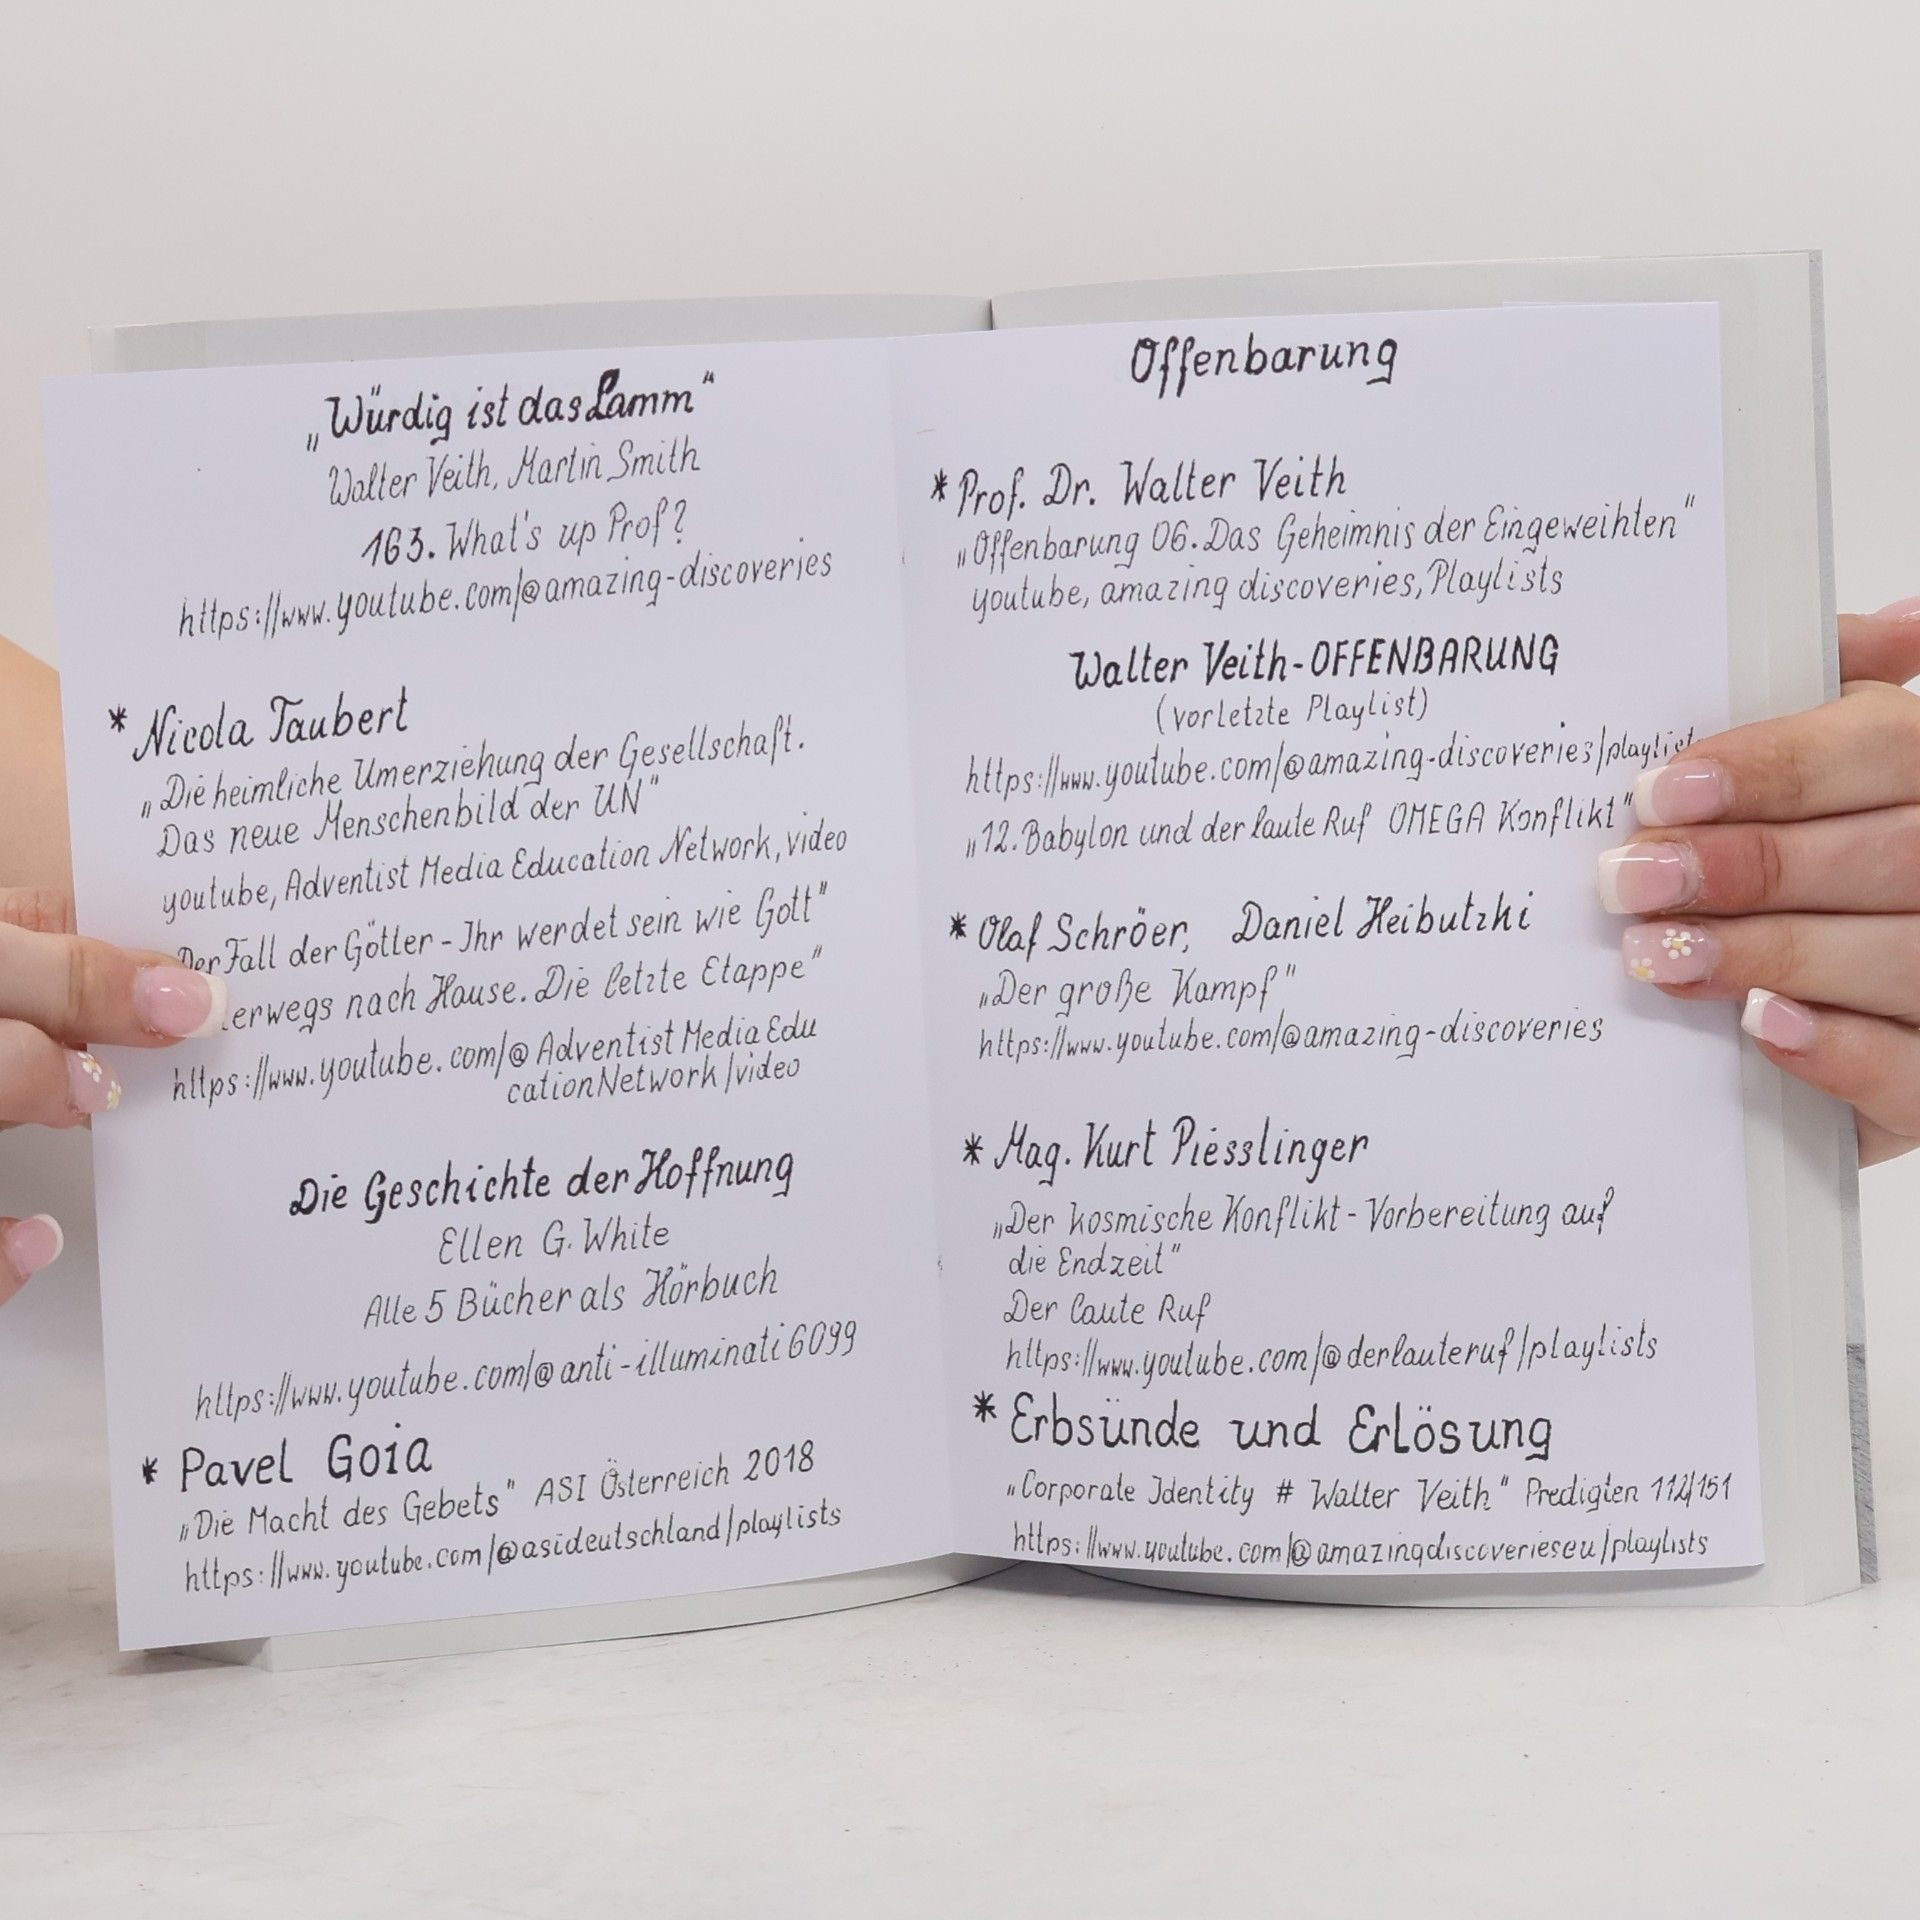 „Würdig ist das Lamm“
Walter Veith, Martin Smith
163. What's up Prof?
https://www.youtube.com/@amazing-discoveries
* Nicola Taubert
„Die heimliche Umerziehung der Gesellschaft.
Das neue Menschenbild der UN“
youtube, Adventist Media Education Network, video
Der Fall der Götter - Ihr werdet sein wie Gott“
nach Hause. Die letzte Etappe“
https://www.youtube.com/@AdventistMediaEdu
cationNetwork/video
Die Geschichte der Hoffnung
Ellen G. White
Alle 5 Bücher als Hörbuch
https://www.youtube.com/@anti-illuminati6099
* Pavel Goia
„Die Macht des Gebets“ ASI Österreich 2018
https://www.youtube.com/@asideutschland/playlists
Offenbarung
* Prof. Dr. Walter Veith
„Offenbarung 06. Das Geheimnis der Eingeweihten“
youtube, amazing discoveries, Playlists
Walter Veith - OFFENBARUNG
(vorletzte Playlist)
https://www.youtube.com/@amazing-discoveries/playlists
„12. Babylon und der laute Ruf OMEGA Konflikt“
* Olaf Schröer, Daniel Heibutzki
„Der große Kampf“
https://www.youtube.com/@amazing-discoveries
* Mag. Kurt Piesslinger
„Der kosmische Konflikt - Vorbereitung auf
die Endzeit“
Der laute Ruf
https://www.youtube.com/@derlauteruf/playlists
* Erbsünde und Erlösung
„Corporate Identity # Walter Veith“ Predigten 112/151
https://www.youtube.com/@amazingdiscoverieseu/playlists